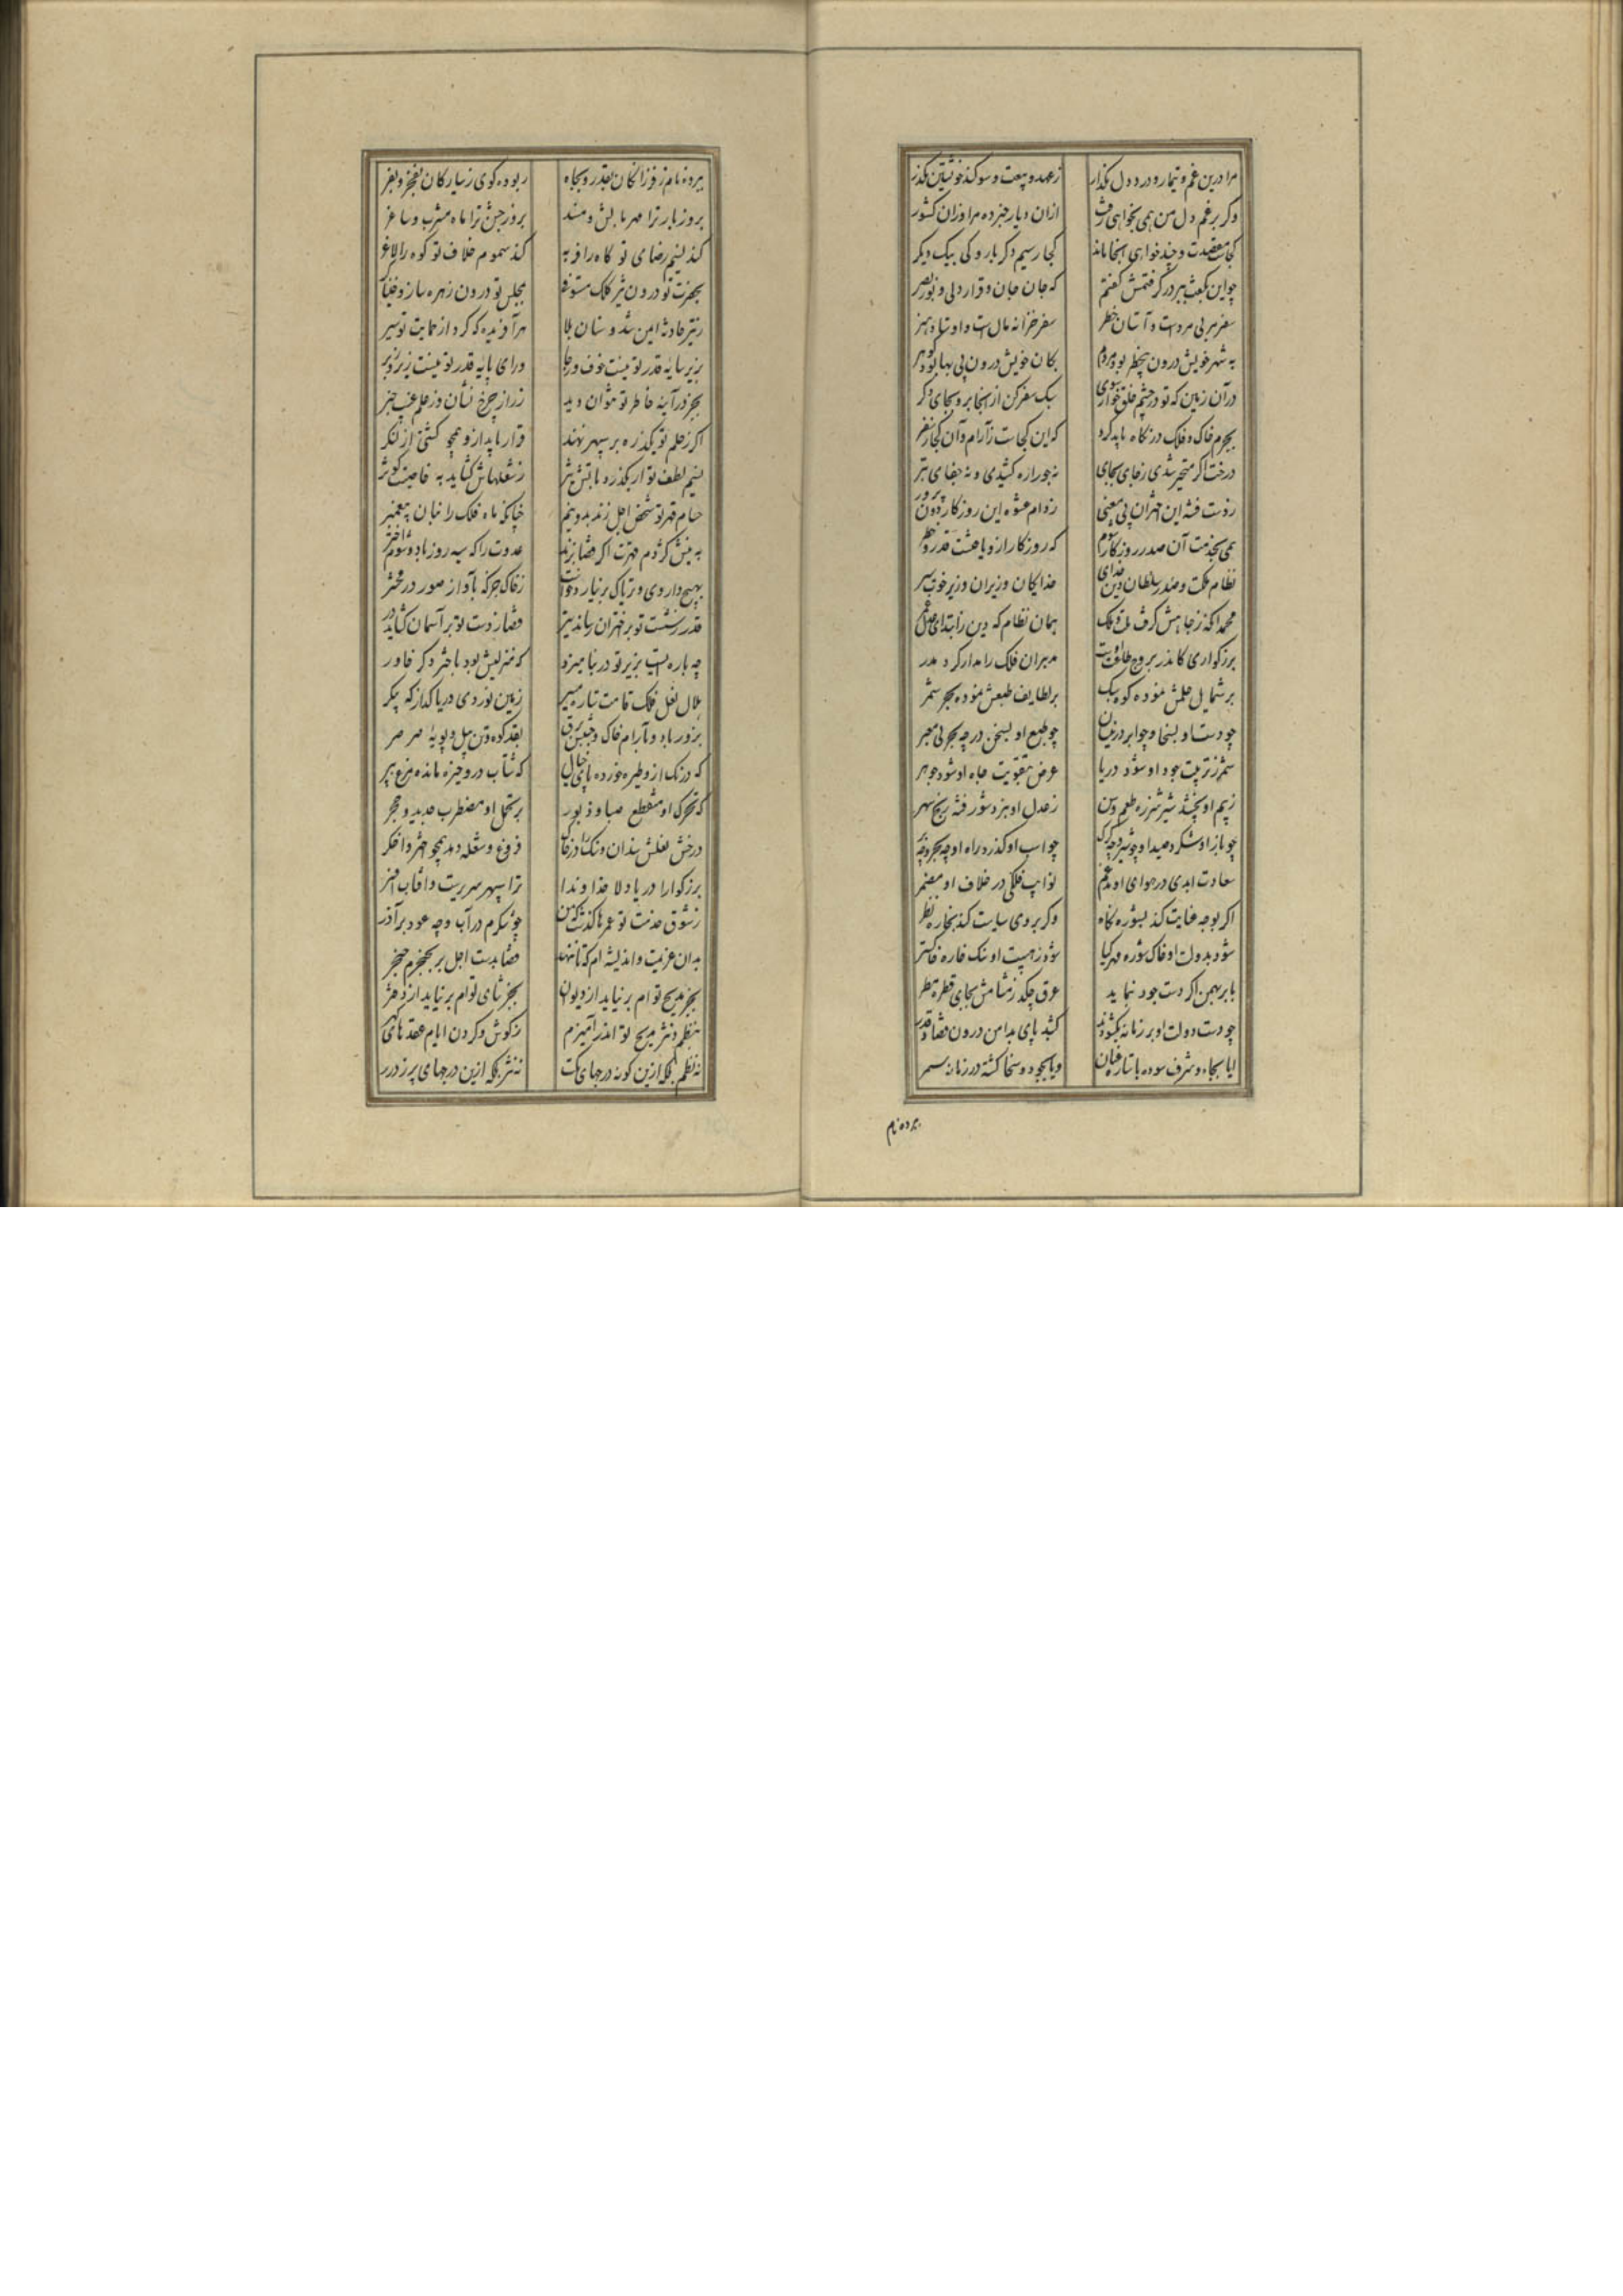 مرا درین غم و تیمار و درد دل مگذار
ز عهد و بیعت و سوگند خویشتن مگذر
وگر برغم دل من همی بخواهی رفت
ازان دیار خبر ده مرا وزان کشور
کجاست مقصدت و چند خواهی آنجا ماند
کجا رسیم دگر بار و کی بیک دیگر
چو این بگفت ببر در گرفتمش گفتم
که جان جان و قرار دلی و نور بصر
سفر مربی مردست و آستان خطر
سفر خزانه مال است و اوستاد هنر
به شهر خویش درون بیخطر بود مردم
بکان خویش درون بی بها بود گوهر
در آن زمین که تو در چشم خلق خوار شوی
سبک سفر کن از آنجا برو بجای دگر
بجرم خاک و فلک در نگاه باید کرد
که این کجاست ز آرام و آن کجا ز سفر
درخت اگر متحرک شدی ز جای بجای
نه جور اره کشیدی و نه جفای تبر
ز دست فتنه این اختران بی معنی
ز دام عشوه این روزگار دون پرور
همی بخدمت آن صدر روزگار شوم
که روزگار ازو یافتست قدر و خطر
نظام ملکت و صدر سلطان دین خدای
خدایگان وزیران وزیر خوب سیر
محمد آنکه ز جاهش گرفت ملت و ملک
همان نظام که دین ز ابتدا بعدل عمر
بزرگواری کاندر بروج طاعت اوست
مدبران فلک را مدار گرد مدر
بر شمایل حلمش نموده کوه سبک
بر لطایف طبعش نموده بحر شمر
چو دست او بسخا و چو ابر در نیسان
چو طبع او بسخن در چه بحر بی معبر
شمر ز تربیت جود او شود دریا
عرض بتقویت جاه او شود جوهر
ز بیم او بچشد شیر شرزه طعم وسن
ز عدل او ببرد شور فتنه رنج سهر
چو باز او شکرد صید او چه شیر و چه گرگ
چو اسب او گذرد راه او چه بحر و چه بر
سعادت ابدی در هوای او مدغم
نوایب فلکی در خلاف او مضمر
اگر بوجه عنایت کند بشوره نگاه
وگر بروی سیاست کند بخاره نظر
شود بدولت او خاک شوره مهر گیا
شود ز هیبت او سنگ خاره خاکستر
بابر بهمن اگر دست جود بنماید
عرق چکد ز مسامش بجای قطره مطر
چو دست دولت او بر زمانه بگشودند
کشید پای بدامن درون قضا و قدر
ایا بجاه و شرف سوده با ستاره عنان
و یا بجود و سخا گشته در زمانه سمر
ببرده نام
ببرده نام ز فرزانگان بقدر و بجاه
ربوده گوی ز سیارگان بفخر و بفر
بروز بار ترا مهر بالش و مسند
بروز جشن ترا ماه مشرب و ساغر
کند نسیم رضای تو کاه را فربه
کند سموم خلاف تو کوه را لاغر
بحضرت تو درون تیر کلک مستوفی
بمجلس تو درون زهره ساز و خنیاگر
ز تیر حادثه ایمن شد و سنان بلا
هر آفریده که کرد از حمایت تو سپر
بزیر سایه قدر تو نیست خوف و رجا
ورای پایه قدر تو نیست زیر و زبر
بجز در آینه خاطر تو نتوان دید
ز راز چرخ نشان وز علم غیب خبر
اگر ز حلم تو یک ذره بر سپهر نهند
قرار یابد ازو همچو کشتی از لنگر
نسیم لطف تو ار بگذرد بآتش تیز
ز شعلهاش گشاید به خاصیت کوثر
حسام قهر تو شخص اجل زند بدو نیم
چنانکه ماه فلک را بنان پیغمبر
به نیش کژدم قهرت اگر قضا بزند
عدوت را که سیه روز باد و شوم اختر
بهیچ داروی و تریاک بر نیارد خاست
ز خاک جز که بآواز صور در محشر
قدر ز شست تو بر اختران رساند تیر
قضا ز دست تو بر آسمان گشاید در
چه باره ایست بزیر تو در بنامیزد
که منزلش بود باختر دگر خاور
هلال نعل فلک قامت ستاره مسیر
زمین نوردی دریا گذار که پیکر
بزور باد و بآرام خاک و جنبش برق
بقد کوه و تن پیل و پویه صرصر
که درنگ ازو طیره خورده پای جبال
که شتاب درو خیره مانده مرغ بپر
که تحرک او منقطع صبا و دبور
بر تحمل او مضطرب حدید و حجر
درخش نعلش سندان و سنگ را در خاک
فروغ و شعله دهد همچو اختر و اخگر
بزرگوارا دریادلا خداوندا
ترا سپهر سریرست و آفتاب افسر
ز شوق خدمت تو عمرها گذشت که من
چو شکرم در آب و چه عود بر آذر
بدان عزیمت و اندیشه ام که تا ننهد
قضا بدست اجل بر بحنجرم خنجر
بجز مدیح توام بر نیاید از دیوان
بجز ثنای توام بر نیاید از دفتر
بنظم و نثر مدیح تو اندر آمیزم
ز گوش و گردن ایام عقدهای گهر
نه نظم بلکه ازین گونه درجهای نکت
نه نثر بلکه ازین درجهای پر ز درر